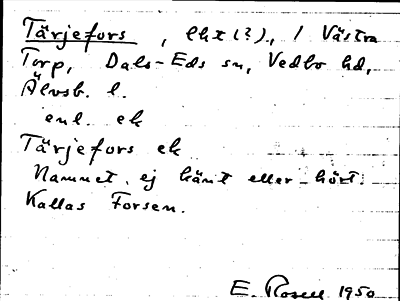 Tärjefors, lht (?), i Västra
Torp, Dals-Eds sn, Vedbo hd,
Älvsb. l.
enl. ek
Tärjefors ek
Namnet ej känt eller hört.
Kallas Forsen.
E. Rosell 1950